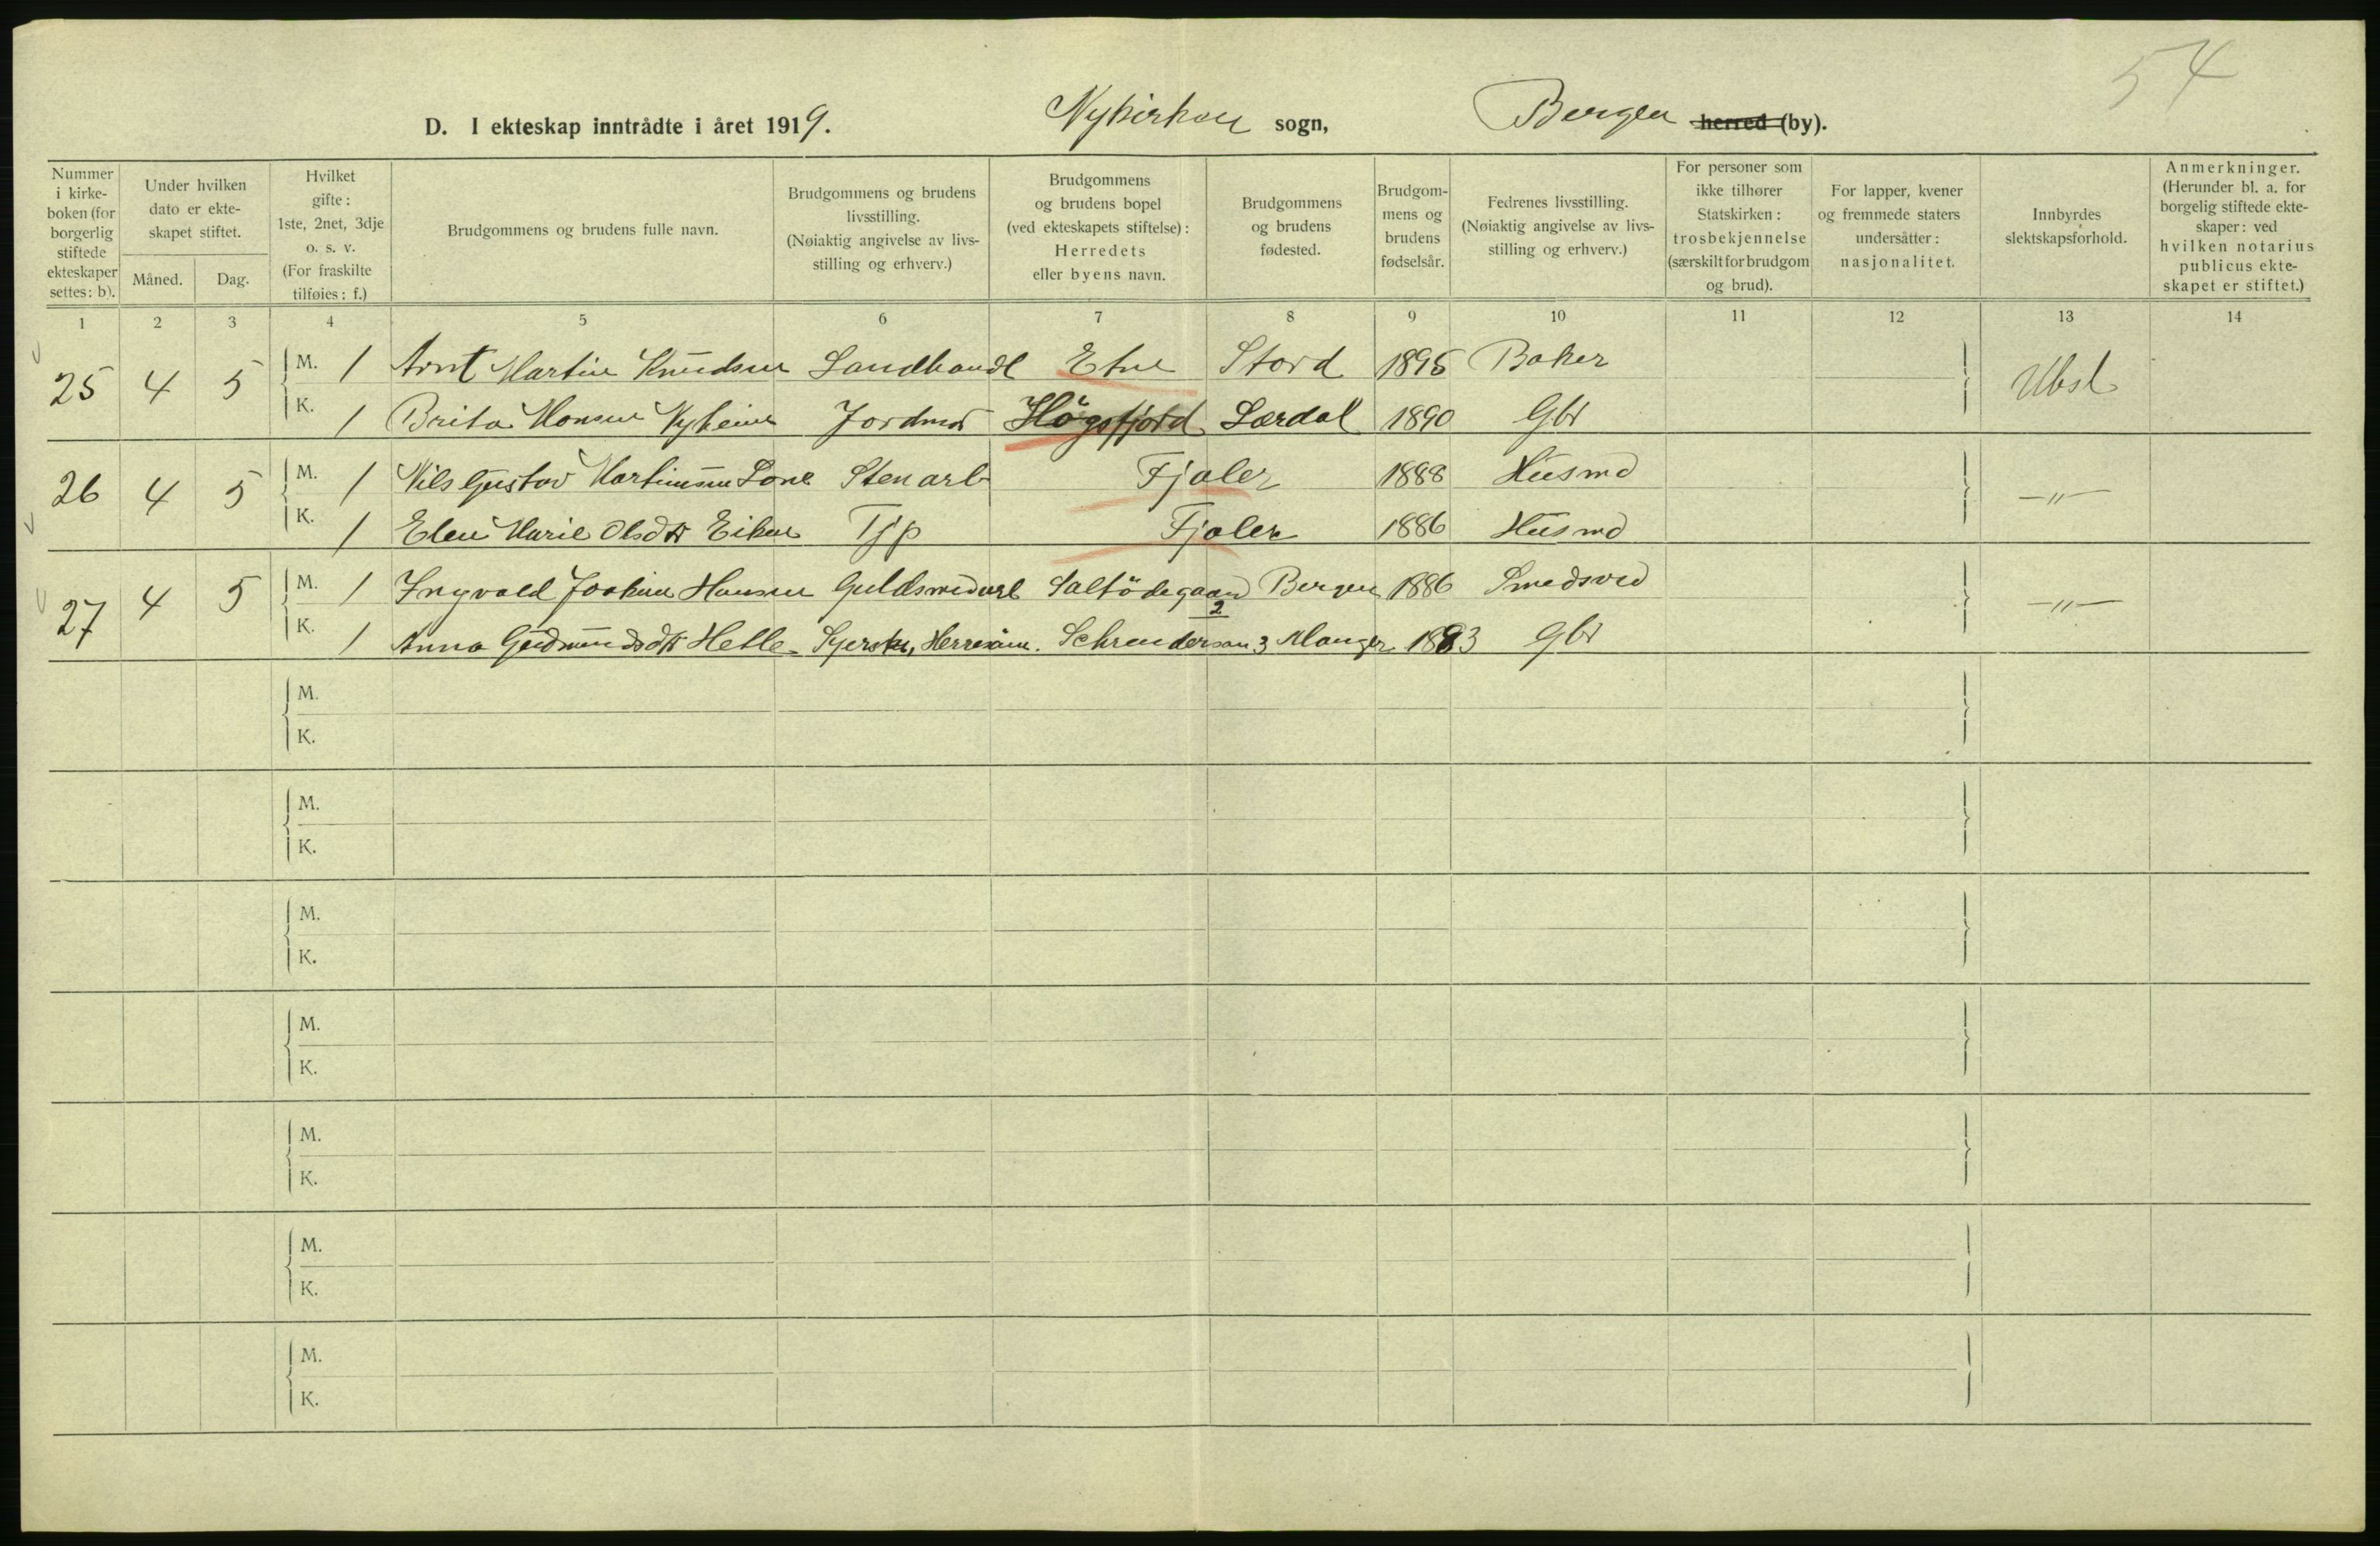 54
D. I ekteskap inntrådte i året 1919. Nykirken sogn, Bergen herred (by).
Nummer i kirkeboken (for borgerlig stiftede ekteskaper settes: b).
Under hvilken dato er ekteskapet stiftet.
Måned. Dag.
Hvilket gifte: 1ste, 2net, 3dje o. s. v. (For fraskilte tilføies: f.)
Brudgommens og brudens fulle navn.
Brudgommens og brudens livsstilling. (Nøiaktig angivelse av livsstilling og erhverv.)
Brudgommens og brudens bopel (ved ekteskapets stiftelse): Herredets eller byens navn.
Brudgommens og brudens fødested.
Brudgommens og brudens fødselsår.
Fedrenes livsstilling. (Nøiaktig angivelse av livsstilling og erhverv.)
For personer som ikke tilhører Statskirken: trosbekjennelse (særskilt for brudgom og brud).
For lapper, kvener og fremmede staters undersåtter: nasjonalitet.
Innbyrdes slektskapsforhold.
Anmerkninger. (Herunder bl. a. for borgelig stiftede ekteskaper: ved hvilken notarius publicus ekteskapet er stiftet.)
1 2 3 4 5 6 7 8 9 10 11 12 13 14
25 4 5 M. 1 Arnt Martin Knudsen Landhandl Etne Stord 1895 Baker Ubsl
K. 1 Brita Monsen Nyheim Jordmor Högsfjord Lærdal 1890 Gbr
26 4 5 M. 1 Nils Gustav Martinsen Lone Stenarb Fjaler 1888 Husmd —"—
K. 1 Elen Marie Olsdtr Eiken Tjp Fjaler 1886 Husmd
27 4 5 M. 1 Ingvald Joakim Hansen Guldsmedarb Saltödegaard 2 Bergen 1886 Smedsvd —"—
K. 1 Anna Gudmundsdtr Helle Syerske, Schreudersm 3 Manger 1883 Gbr
M.
K.
M.
K.
M.
K.
M.
K.
M.
K.
M.
K.
M.
K.